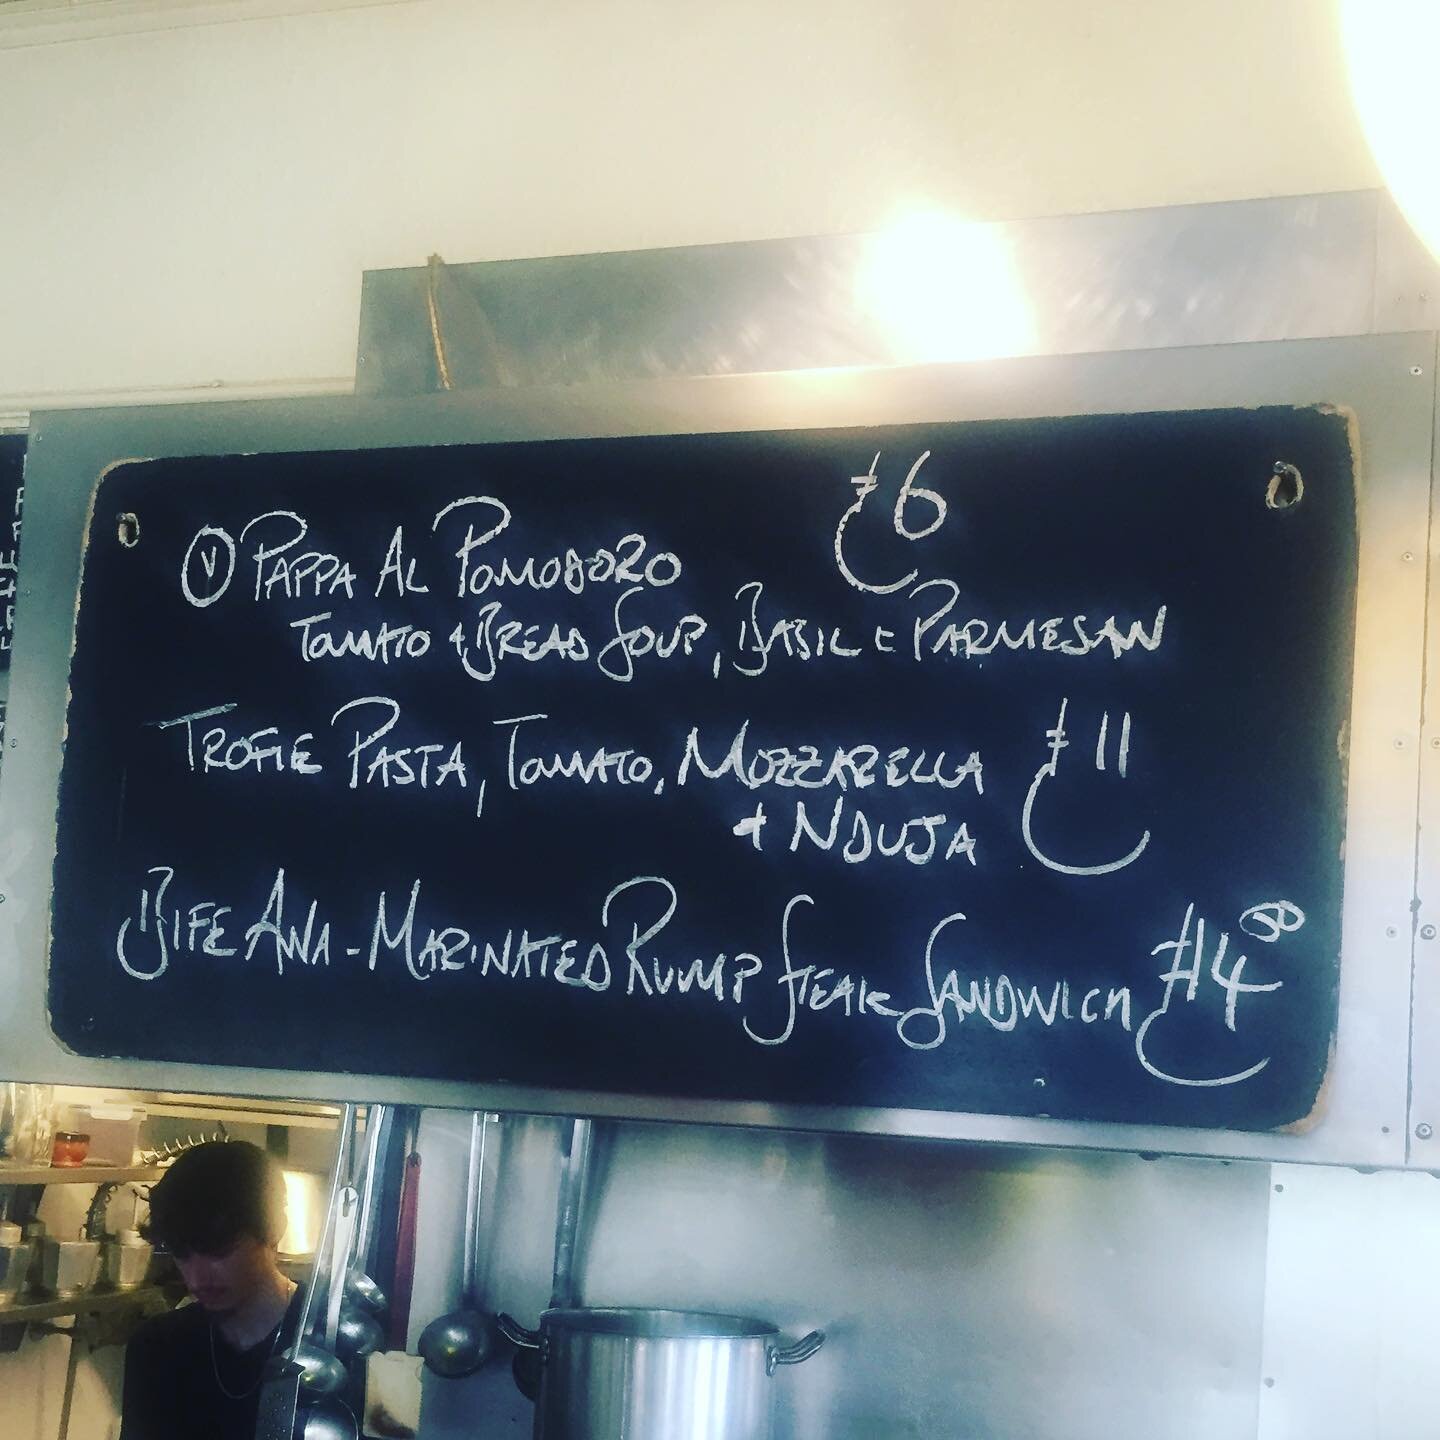 £6
Ⓥ PAPPA AL POMODORO
TOMATO + BREAD SOUP, BASIL & PARMESAN
TROFIE PASTA, TOMATO, MOZZARELLA £11
+ NDUJA
BIFE ANA - MARINATED RUMP STEAK SANDWICH £14